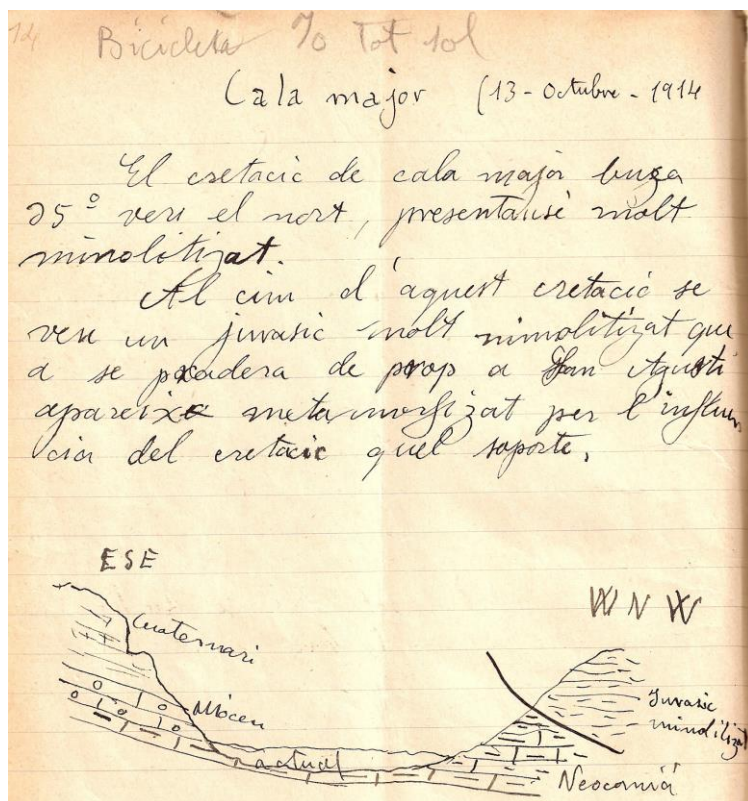 14 Bicicleta Jo Tot sol
Cala major (13 - Octubre - 1914
El cretacic de cala major buza
25º vers el nort, presentanse molt
mimolitizat.
Al cim d'aquest cretacic se
veu un jurasic molt mimolitizat que
a se pradera de prop a San Agusti
apareixe metamorfizat per l'influen
cia del cretacic quel soporte.
ESE
WNW
Cuaternari
Miocen
actual
Jurasic
mimolitizat
Neocomiá